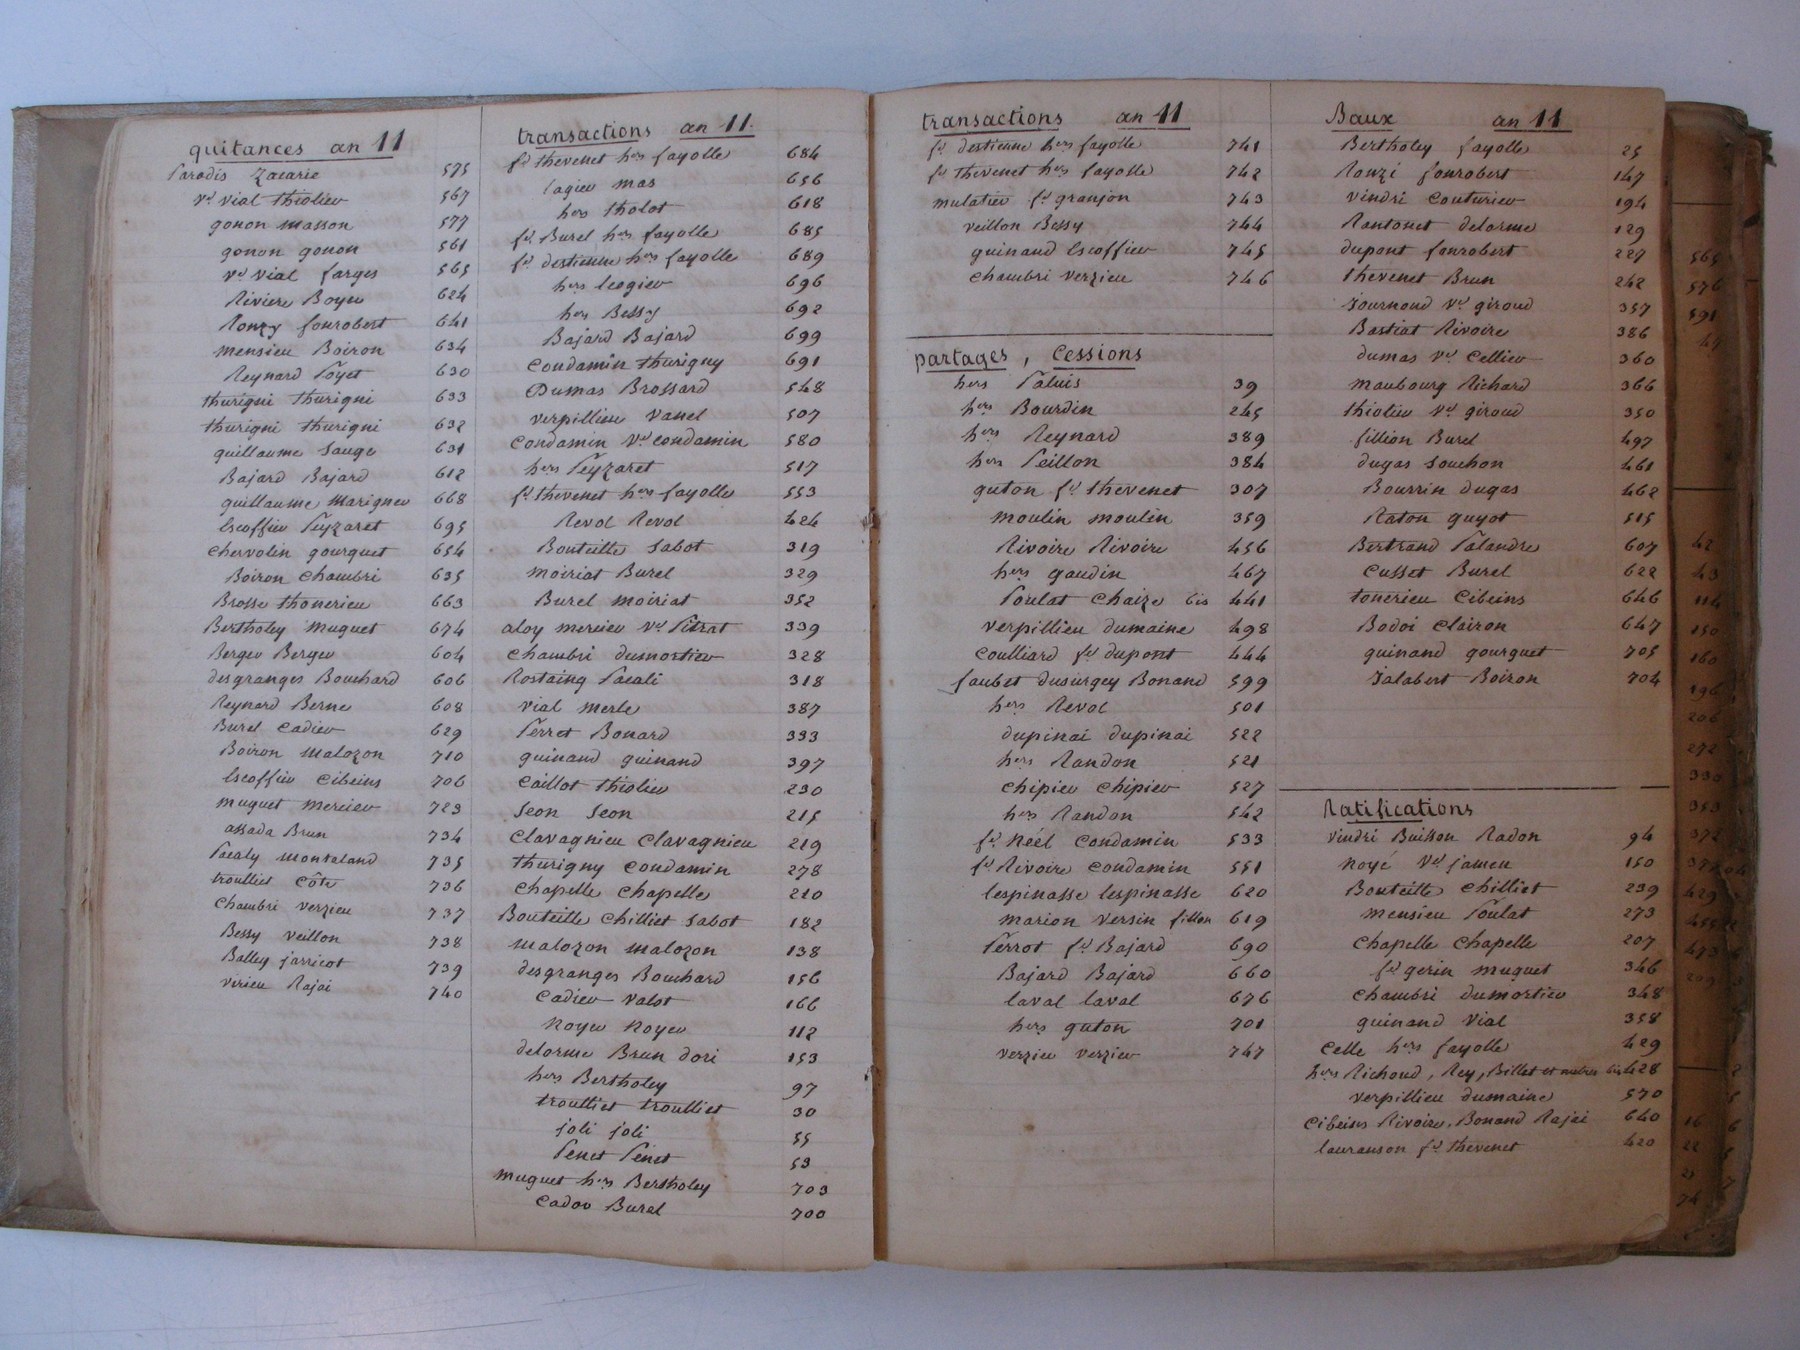 quitances an 11
Paradis Zacarie 575
ve vial thiolier 567
gonon masson 577
gonon gonon 561
ve vial farges 565
Riviere Boyer 624
Ronzy fonrobert 641
mensieu Boiron 634
Reynard Poyet 630
thurigni thurigni 633
thurigni thurigni 632
guillaume Sauge 631
Bajard Bajard 612
guillaume Marignier 668
Escoffier Peyzaret 695
Chervolin gourguet 654
Boiron Chambri 635
Brosse thonerieu 663
Bertholey muguet 674
Berger Berger 604
desgranges Bouchard 606
Reynard Berne 608
Burel Cadier 629
Boiron malozon 710
Escoffier Cibeins 706
muguet mercier 723
assada Brun 734
Pacaly montaland 735
troulliet Côte 736
Chambri verzieu 737
Bessy veillon 738
Balley jarricot 739
virieu Rajai 740
transactions an 11.
fe thevenet hers fayolle 684
Lagier mas 656
hers tholot 618
fe Burel hers fayolle 685
fe destienne hers fayolle 689
hers leogier 696
hers Bessy 692
Bajard Bajard 699
Condamin thurigny 691
Dumas Brossard 548
verpillieu vanel 507
Condamin ve Condamin 580
hers Peyzaret 517
fe thevenet hers fayolle 553
Revol Revol 424
Bouteille Sabot 319
moiriat Burel 329
Burel moiriat 352
aloy mercier ve Pitrat 339
Chambri dumortier 328
Rostaing Pacali 318
vial merle 387
Perret Bonard 333
guinand guinand 397
Caillot thiolier 230
Seon Seon 215
Clavagnieu Clavagnieu 219
thurigny Condamin 278
Chapelle Chapelle 210
Bouteille Chilliet Sabot 182
malozon malozon 138
desgranges Bouchard 156
Cadier valot 166
Noyer Noyer 112
delorme Brun dori 153
hers Bertholey 97
troulliet troulliet 30
joli joli 55
Penet Penet 53
muguet hers Bertholey 703
Cador Burel 700
transactions an 11
fe destienne hers fayolle 741
fe thevenet hers fayolle 742
mulatier fe granjon 743
veillon Bessy 744
guinand Escoffier 745
Chambri verzieu 746
partages, Cessions
hers Paluis 39
hers Bourdin 245
hers Reynard 389
hers Peillon 384
guton fe thevenet 307
moulin moulin 359
Rivoire Rivoire 456
hers gaudin 467
Poulat Chaize bis 441
verpillieu dumaine 498
Coulliard fe dupont 444
faubet dusurgey Bonand 599
hers Revol 501
dupinai dupinai 522
hers Randon 521
Chipier Chipier 527
hers Randon 542
fe Néel Condamin 533
fe Rivoire Condamin 551
lespinasse lespinasse 620
marion versin fillon 619
Perrot fe Bajard 690
Bajard Bajard 660
laval laval 676
hers guton 701
verzieu verzieu 747
Baux an 11
Bertholey fayolle 25
Ronzi fonrobert 147
vindri Couturier 194
Rantonet delorme 129
dupont fonrobert 227
thevenet Brun 242
Journoud ve giroud 357
Bastiat Rivoire 386
dumas ve Cellier 360
maubourg Richard 366
thiolier ve giroud 350
fillion Burel 497
dugas Souchon 461
Bourrin dugas 462
Raton guyot 515
Bertrand Palandre 607
Cusset Burel 622
tonerieu Cibeins 646
Bodoi Clairon 647
guinand gourguet 705
Jalabert Boiron 704
Ratifications
vindri Buisson Radon 94
Noyé ve Jamen 150
Bouteille Chilliet 239
mensieu Poulat 273
Chapelle Chapelle 207
fe gerin muguet 346
Chambri dumortier 348
guinand vial 358
Celle hers fayolle 429
hers Richoud, Rey, Billet et autres bis 428
verpillieu dumaine 570
Cibeins Rivoire, Bonand Rajai 640
lauranson fe thevenet 420
565
576
591
42
43
114
150
160
196
206
272
330
353
372